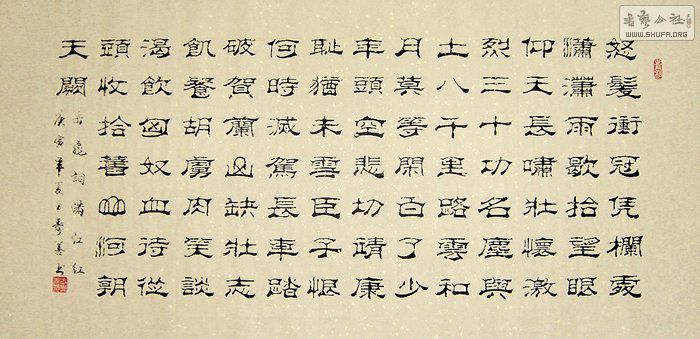 怒髮衝冠凭欄處
瀟瀟雨歇抬望眼
仰天長嘯壯懷激
烈三十功名塵與
土八千里路雲和
月莫等閑百了少
年頭空悲切靖康
恥猶未雪臣子恨
何時滅駕長車踏
破賀蘭山缺壯志
飢餐胡虜肉笑談
渴飲匈奴血待從
頭收拾舊山河朝
天闕
岳飛詞滿江紅
庚寅年夏
書藝公社
WWW.SHUFA.ORG